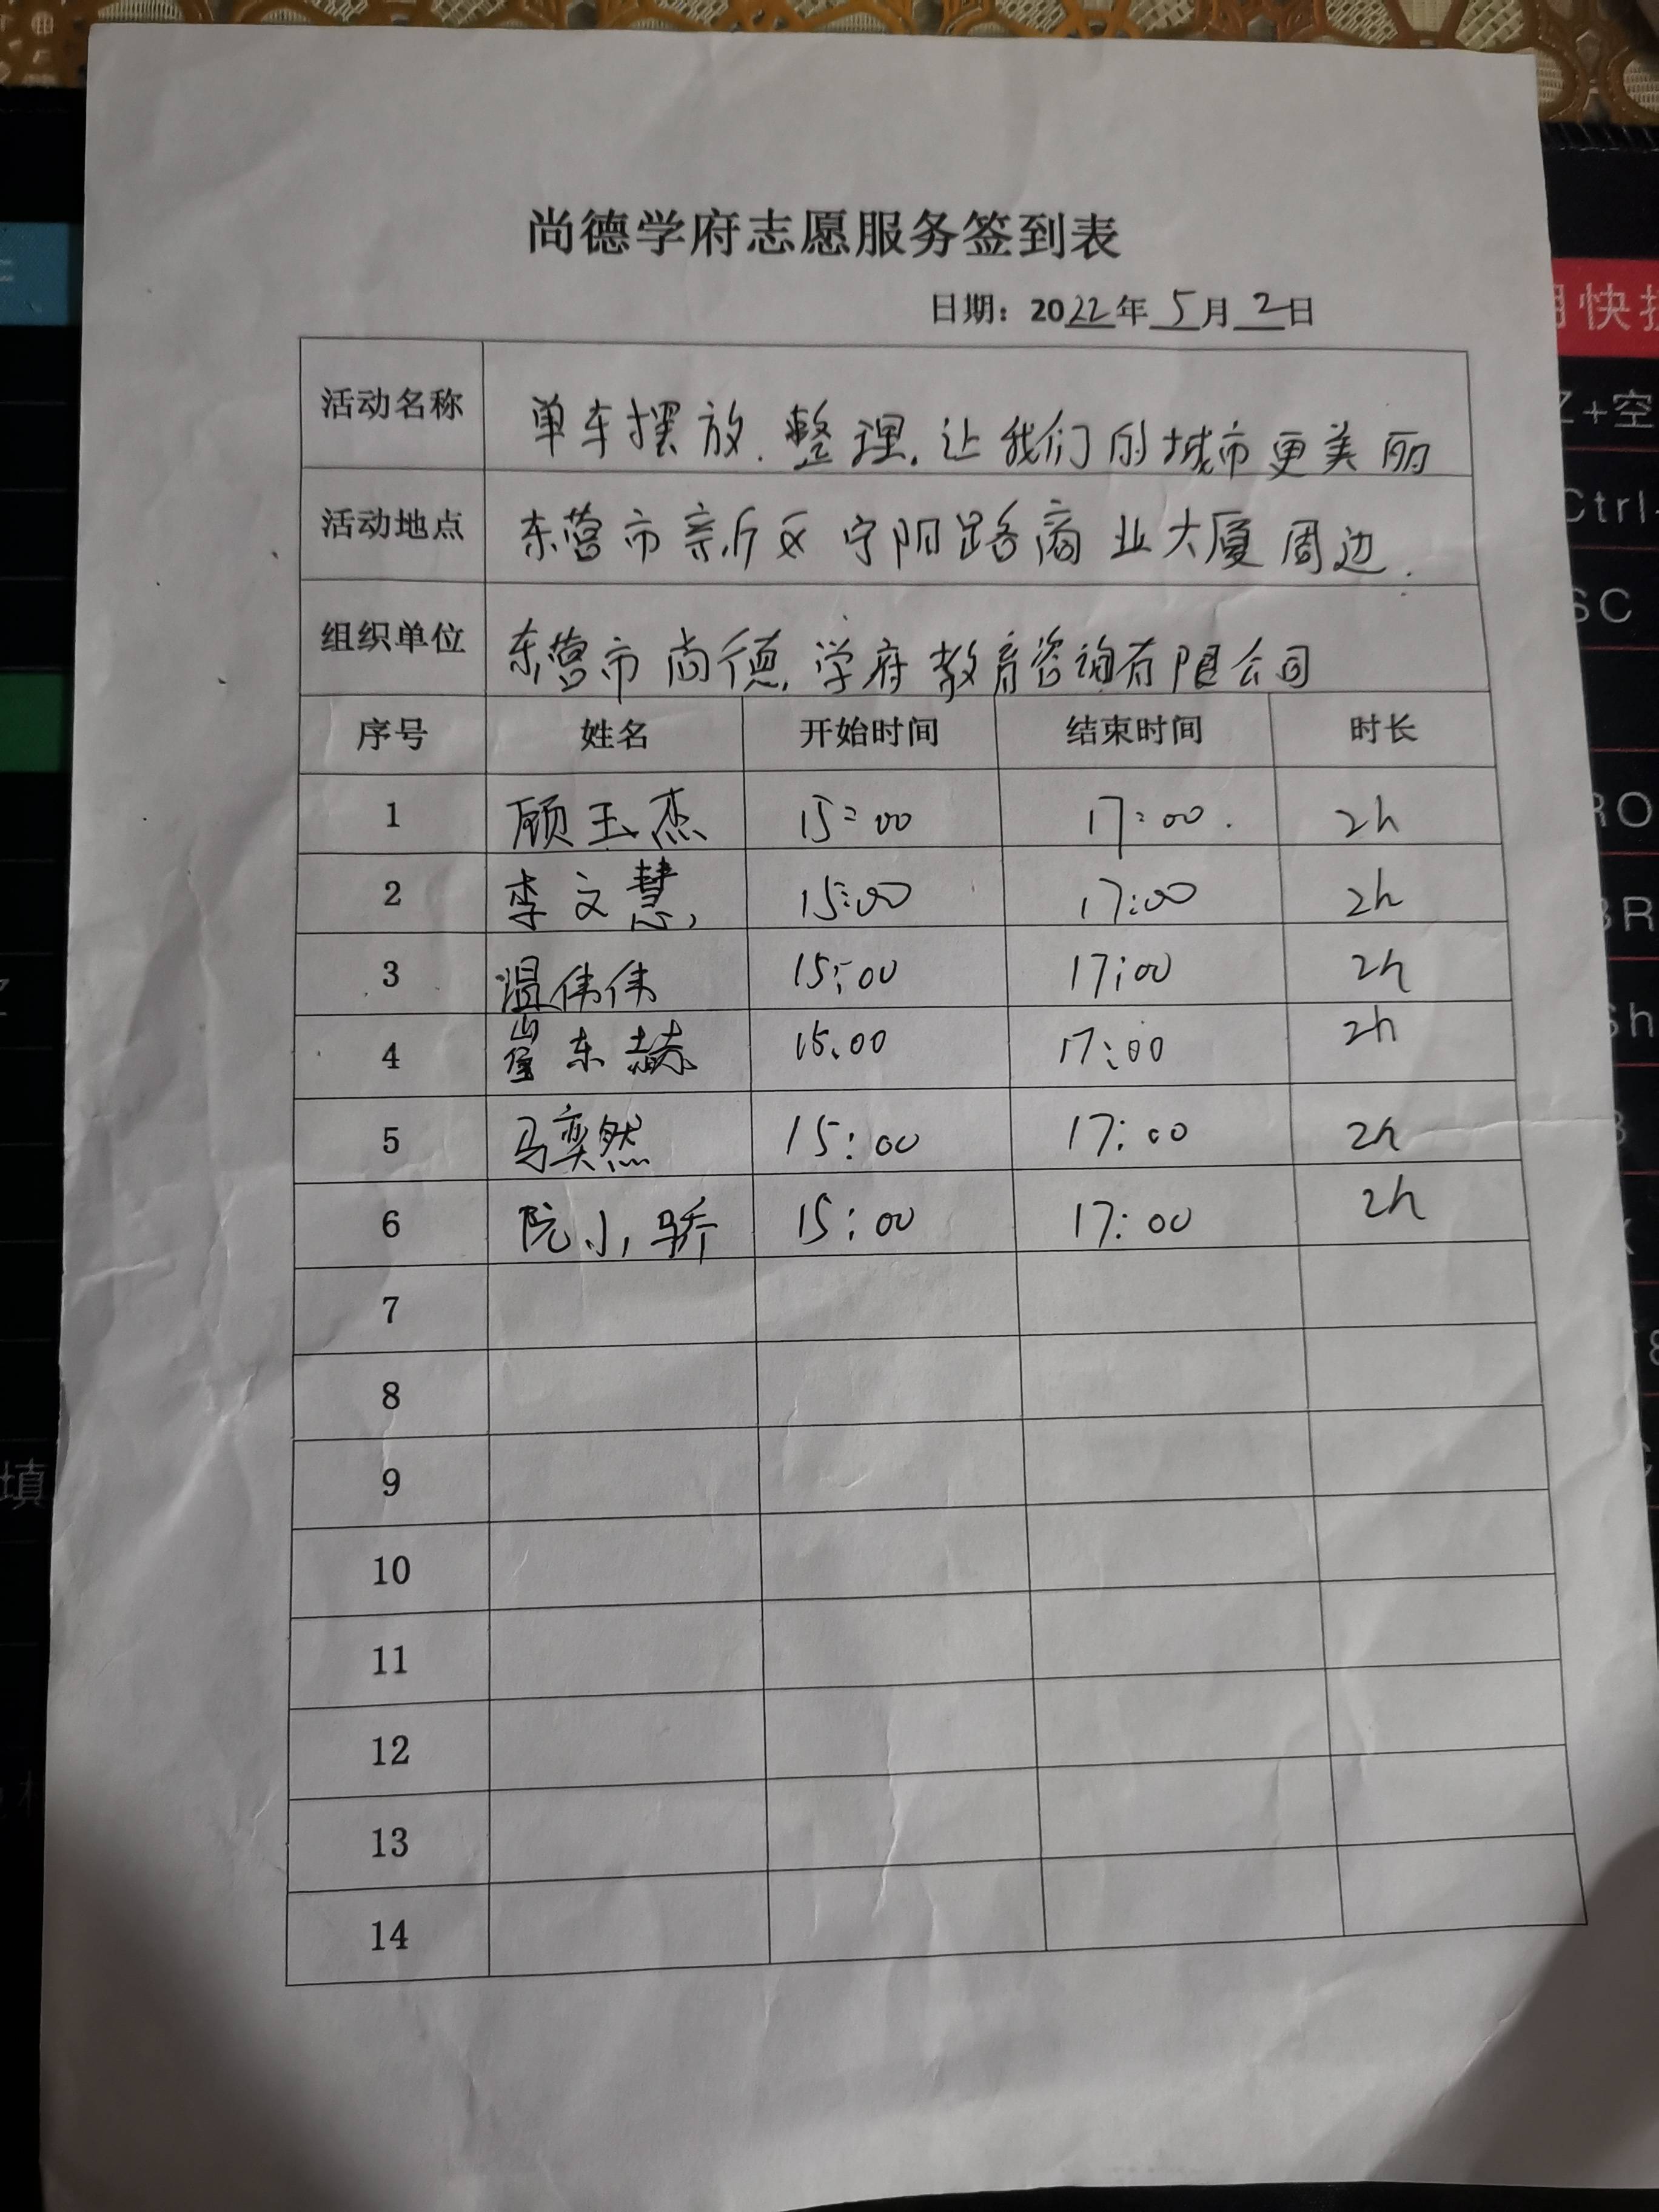 尚德学府志愿服务签到表
日期：2022年5月2日
活动名称 单车摆放.整理.让我们的城市更美丽
活动地点 东营市新区宁阳路商业大厦周边.
组织单位 东营市尚德学府教育咨询有限公司
序号 姓名 开始时间 结束时间 时长
1 顾玉杰 15:00 17:00 2h
2 李文慧 15:00 17:00 2h
3 温伟伟 15:00 17:00 2h
4 崔东赫 15:00 17:00 2h
5 马奕然 15:00 17:00 2h
6 阮小骄 15:00 17:00 2h
7
8
9
10
11
12
13
14
快
+空
Ctrl
SC
填